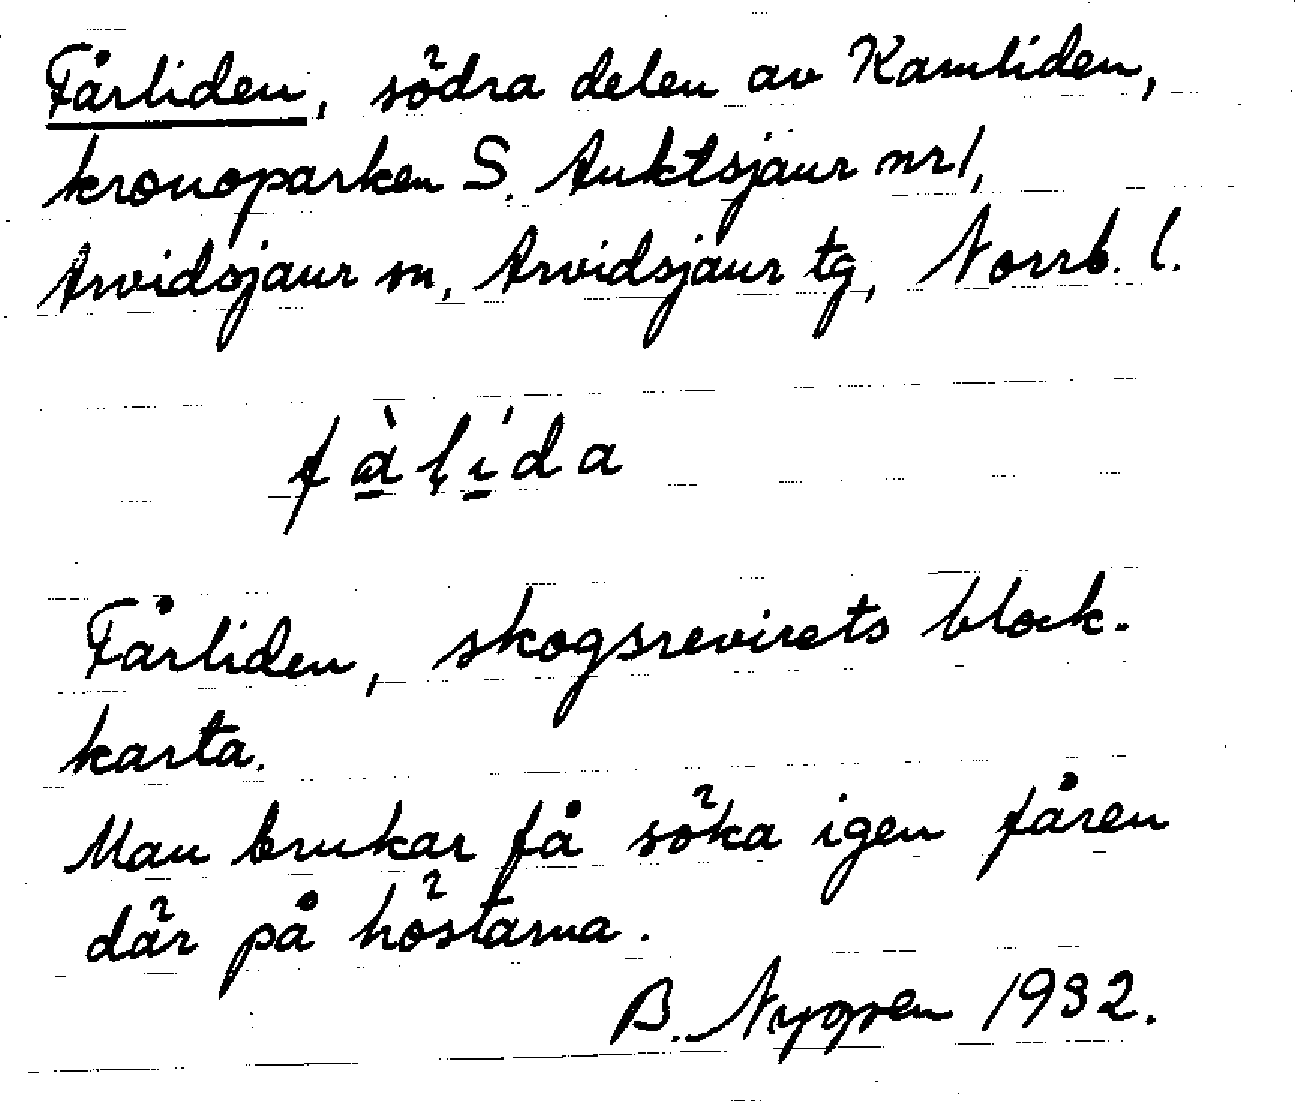 Fårliden, södra delen av Kamliden,
kronoparken S. Auktsjaur nr 1,
Arvidsjaur sn, Arvidsjaur tg, Norrb. l.
fàlída
Fårliden, skogsrevirets block-
karta.
Man brukar få söka igen fåren
där på höstarna.
B. Nygren 1932.